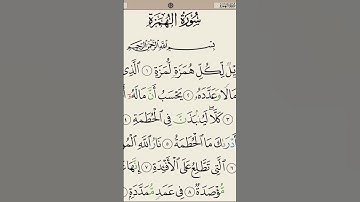 سُورَةُ الْهُمَزَةِ
بِسْمِ اللَّهِ الرَّحْمَٰنِ الرَّحِيمِ
يْلٌ لِّكُلِّ هُمَزَةٍ لُّمَزَةٍ ١ الَّذِي
مَالًا وَعَدَّدَهُ ٢ يَحْسَبُ أَنَّ مَالَهُ
٣ كَلَّا ۖ لَيُنۢبَذَنَّ فِي الْحُطَمَةِ
أَدْرَىٰكَ مَا الْحُطَمَةُ ٥ نَارُ اللَّهِ الْمُو
الَّتِي تَطَّلِعُ عَلَى الْأَفْـِٔدَةِ ٧ إِنَّهَا
مُّؤْصَدَةٌ ٨ فِي عَمَدٍ مُّمَدَّدَةٍ